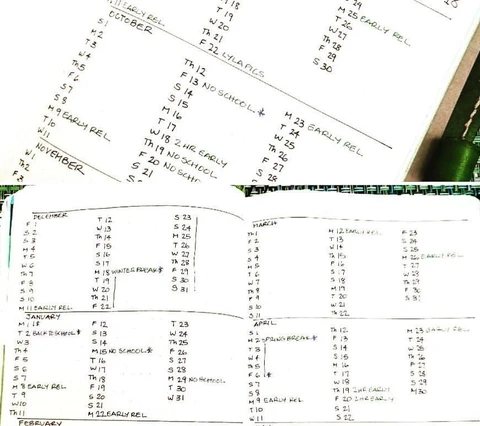 11 EARLY REL
T 19
W 20
Th 21
F 22 LYLAPIGS
M 25 EARLY REL
T 26
W 27
Th 28
F 29
S 30
OCTOBER
S 1
M 2
T 3
W 4
Th 5
F 6
S 7
S 8
M 9 EARLY REL
T 10
W 11
Th 12
F 13 NO SCHOOL *
S 14
S 15
M 16
T 17
W 18 2 HR EARLY
Th 19 NO SCHOOL
F 20 NO SCH
S 21
M 23 EARLY REL
T 24
W 25
Th 26
F 27
S 28
NOVEMBER
W 1
Th 2
DECEMBER
F 1
S 2
S 3
M 4
T 5
W 6
Th 7
F 8
S 9
S 10
M 11 EARLY REL
T 12
W 13
Th 14
F 15
S 16
S 17
M 18 WINTER BREAK *
T 19
W 20
Th 21
F 22
S 23
S 24
M 25
T 26
W 27
Th 28
F 29
S 30
S 31
JANUARY
M 1 *
T 2 BACK 2 SCHOOL *
W 3
Th 4
F 5
S 6
S 7
M 8 EARLY REL
T 9
W 10
Th 11
F 12
S 13
S 14
M 15 NO SCHOOL *
T 16
W 17
Th 18
F 19
S 20
S 21
M 22 EARLY REL
T 23
W 24
Th 25
F 26
S 27
S 28
M 29 NO SCHOOL
T 30
W 31
FEBRUARY
MARCH
Th 1
F 2
S 3
S 4
M 5
T 6
W 7
Th 8
F 9
S 10
S 11
M 12 EARLY REL
T 13
W 14
Th 15
F 16
S 17
S 18
M 19
T 20
W 21
Th 22
F 23
S 24
S 25
M 26 EARLY REL
T 27
W 28
Th 29
F 30
S 31
APRIL
S 1
M 2 SPRING BREAK *
T 3
W 4
Th 5
F 6
S 7
S 8
M 9 EARLY REL
T 10
W 11
Th 12
F 13
S 14
S 15
M 16
T 17
W 18
Th 19 2HR EARLY
F 20 2HR EARLY
S 21
S 22
M 23 EARLY REL
T 24
W 25
Th 26
F 27
S 28
S 29
M 30